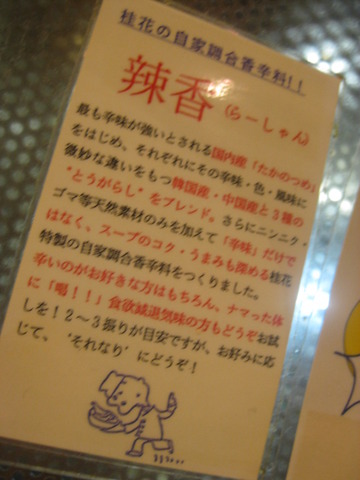 桂花の自家調合香辛料!!
辣香（らーしゃん）
最も辛味が強いとされる国内産「たかのつめ」
をはじめ、それぞれにその辛味・色・風味に
微妙な違いをもつ韓国産・中国産と3種の
"とうがらし"をブレンド。さらにニンニク・
ゴマ等天然素材のみを加えて「辛味」だけで
はなく、スープのコク・うまみも深める桂花
特製の自家調合香辛料をつくりました。
辛いのがお好きな方はもちろん、ナマった体
に「喝!!」食欲減退気味の方もどうぞお試
しを!2〜3振りが目安ですが、お好みに応
じて、"それなり"にどうぞ!